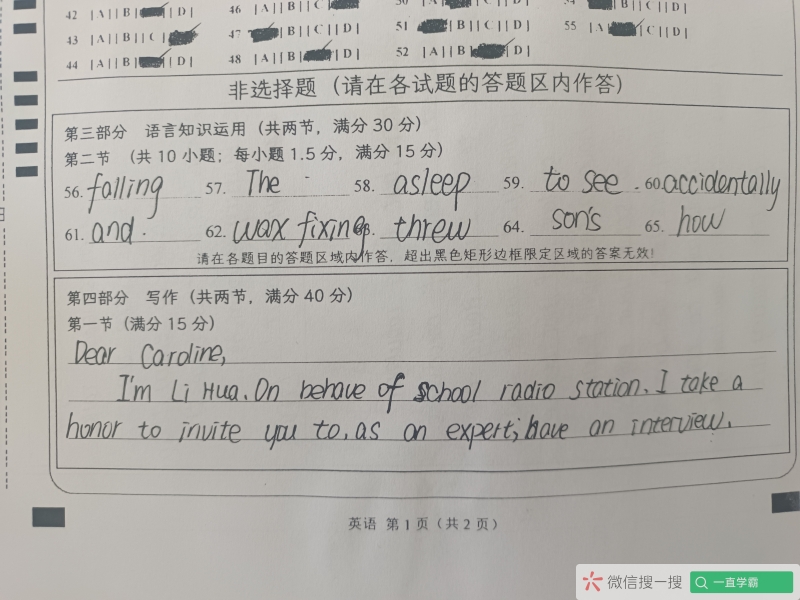 42 [A] [B] [D]
46 [A] [B] [C]
[B] [C] [D]
43 [A] [B] [C]
47 [B] [C] [D]
51 [B] [C] [D]
55 [A] [C] [D]
44 [A] [B] [D]
48 [A] [B] [D]
52 [A] [B] [D]
非选择题（请在各试题的答题区内作答）
第三部分 语言知识运用（共两节，满分 30 分）
第二节 （共 10 小题；每小题 1.5 分，满分 15 分）
56. falling 57. The 58. asleep 59. to see 60. accidentally
61. and 62. wax fixing 63. threw 64. son's 65. how
请在各题目的答题区域内作答，超出黑色矩形边框限定区域的答案无效！
第四部分 写作（共两节，满分 40 分）
第一节（满分 15 分）
Dear Caroline,
I'm Li Hua. On behave of school radio station, I take a
honor to invite you to, as an expert, have an interview.
英语 第 1 页（共 2 页）
微信搜一搜 一直学霸